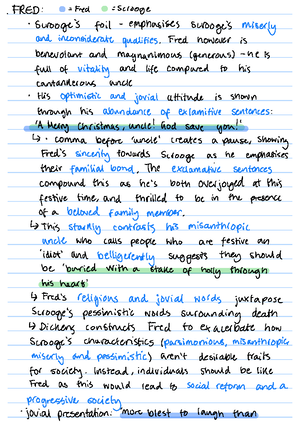 · FRED: = Fred = Scrooge
· Scrooge's foil - emphasises Scrooge's miserly
and inconsiderate qualities. Fred however is
benevolent and magnanimous (generous) - he is
full of vitality and life compared to his
cantankerous uncle
· His optimistic and jovial attitude is shown
through his abundance of exlamitive sentences:
'A Merry Christmas, uncle! God save you!'
↳ · comma before 'uncle' creates a pause, showing
Fred's sincerity towards Scrooge as he emphasises
their familial bond. The exclamative sentences
compound this as he's both overjoyed at this
festive time, and thrilled to be in the presence
of a beloved family member.
↳ This starkly contrasts his misanthropic
uncle who calls people who are festive an
'idiot' and belligerently suggests they should
be 'buried with a stake of holly through
his heart'
↳ Fred's religious and jovial words juxtapose
Scrooge's pessimistic words surrounding death
↳ Dickens constructs Fred to exacerbate how
Scrooge's characteristics (parsimonious, misanthropic,
miserly and pessimistic) aren't desirable traits
for society. Instead, individuals should be like
Fred as this would lead to social reform and a
progressive society
· jovial presentation: 'more blest to laugh than